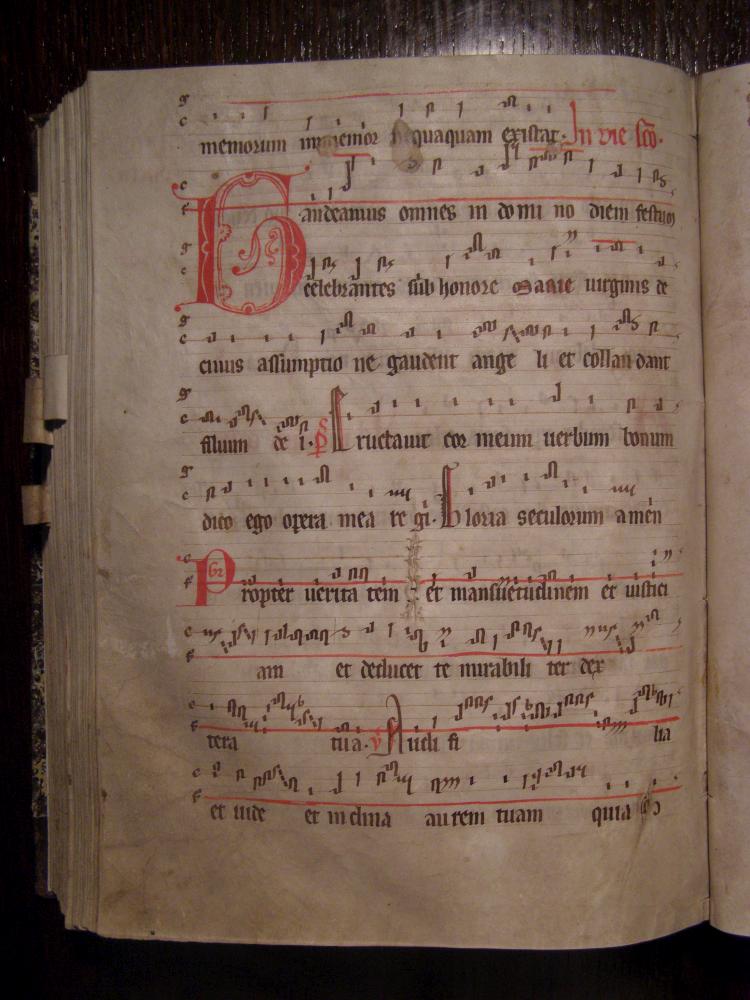 memorum immemor quaquam existat. In vie sco.
Gaudeamus omnes in do mi no diem festum
celebrantes sub honore Marie uirginis de
cuius assumptio ne gaudent ange li et collau dant
filium de i. ps Eructauit cor meum uerbum bonum
dico ego opera mea re gi. Gloria seculorum amen
Gr Propter uerita tem et mansuetudinem et iustici
am et deducet te mirabili ter dex
tera tua. v Audi fi lia
et uide et in clina au rem tuam quia